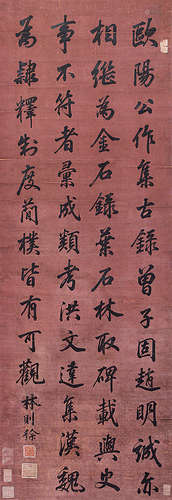 歐陽公作集古錄曾子固趙明誠亦
相繼為金石錄葉石林取碑載與史
事不符者彙成類考洪文達集漢魏
為隸釋制度簡樸皆有可觀 林則徐